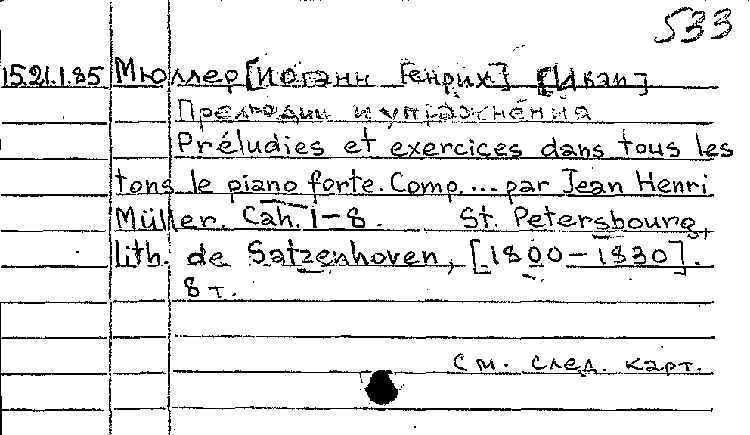 533
15.21.1.85 Мюллер [Иоганн Генрих] [Иван]
Прелюдии и упражнения
Préludies et exercices dans tous les
tons le piano forte. Comp. ... par Jean Henri
Müller. Cah. 1-8. St. Petersbourg,
lith. de Satzenhoven, [1800-1830].
8 т.
См. след. карт.